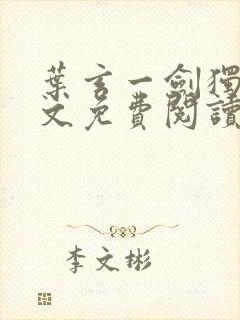 葉玄一劍獨
文免費閱讀
李文彬